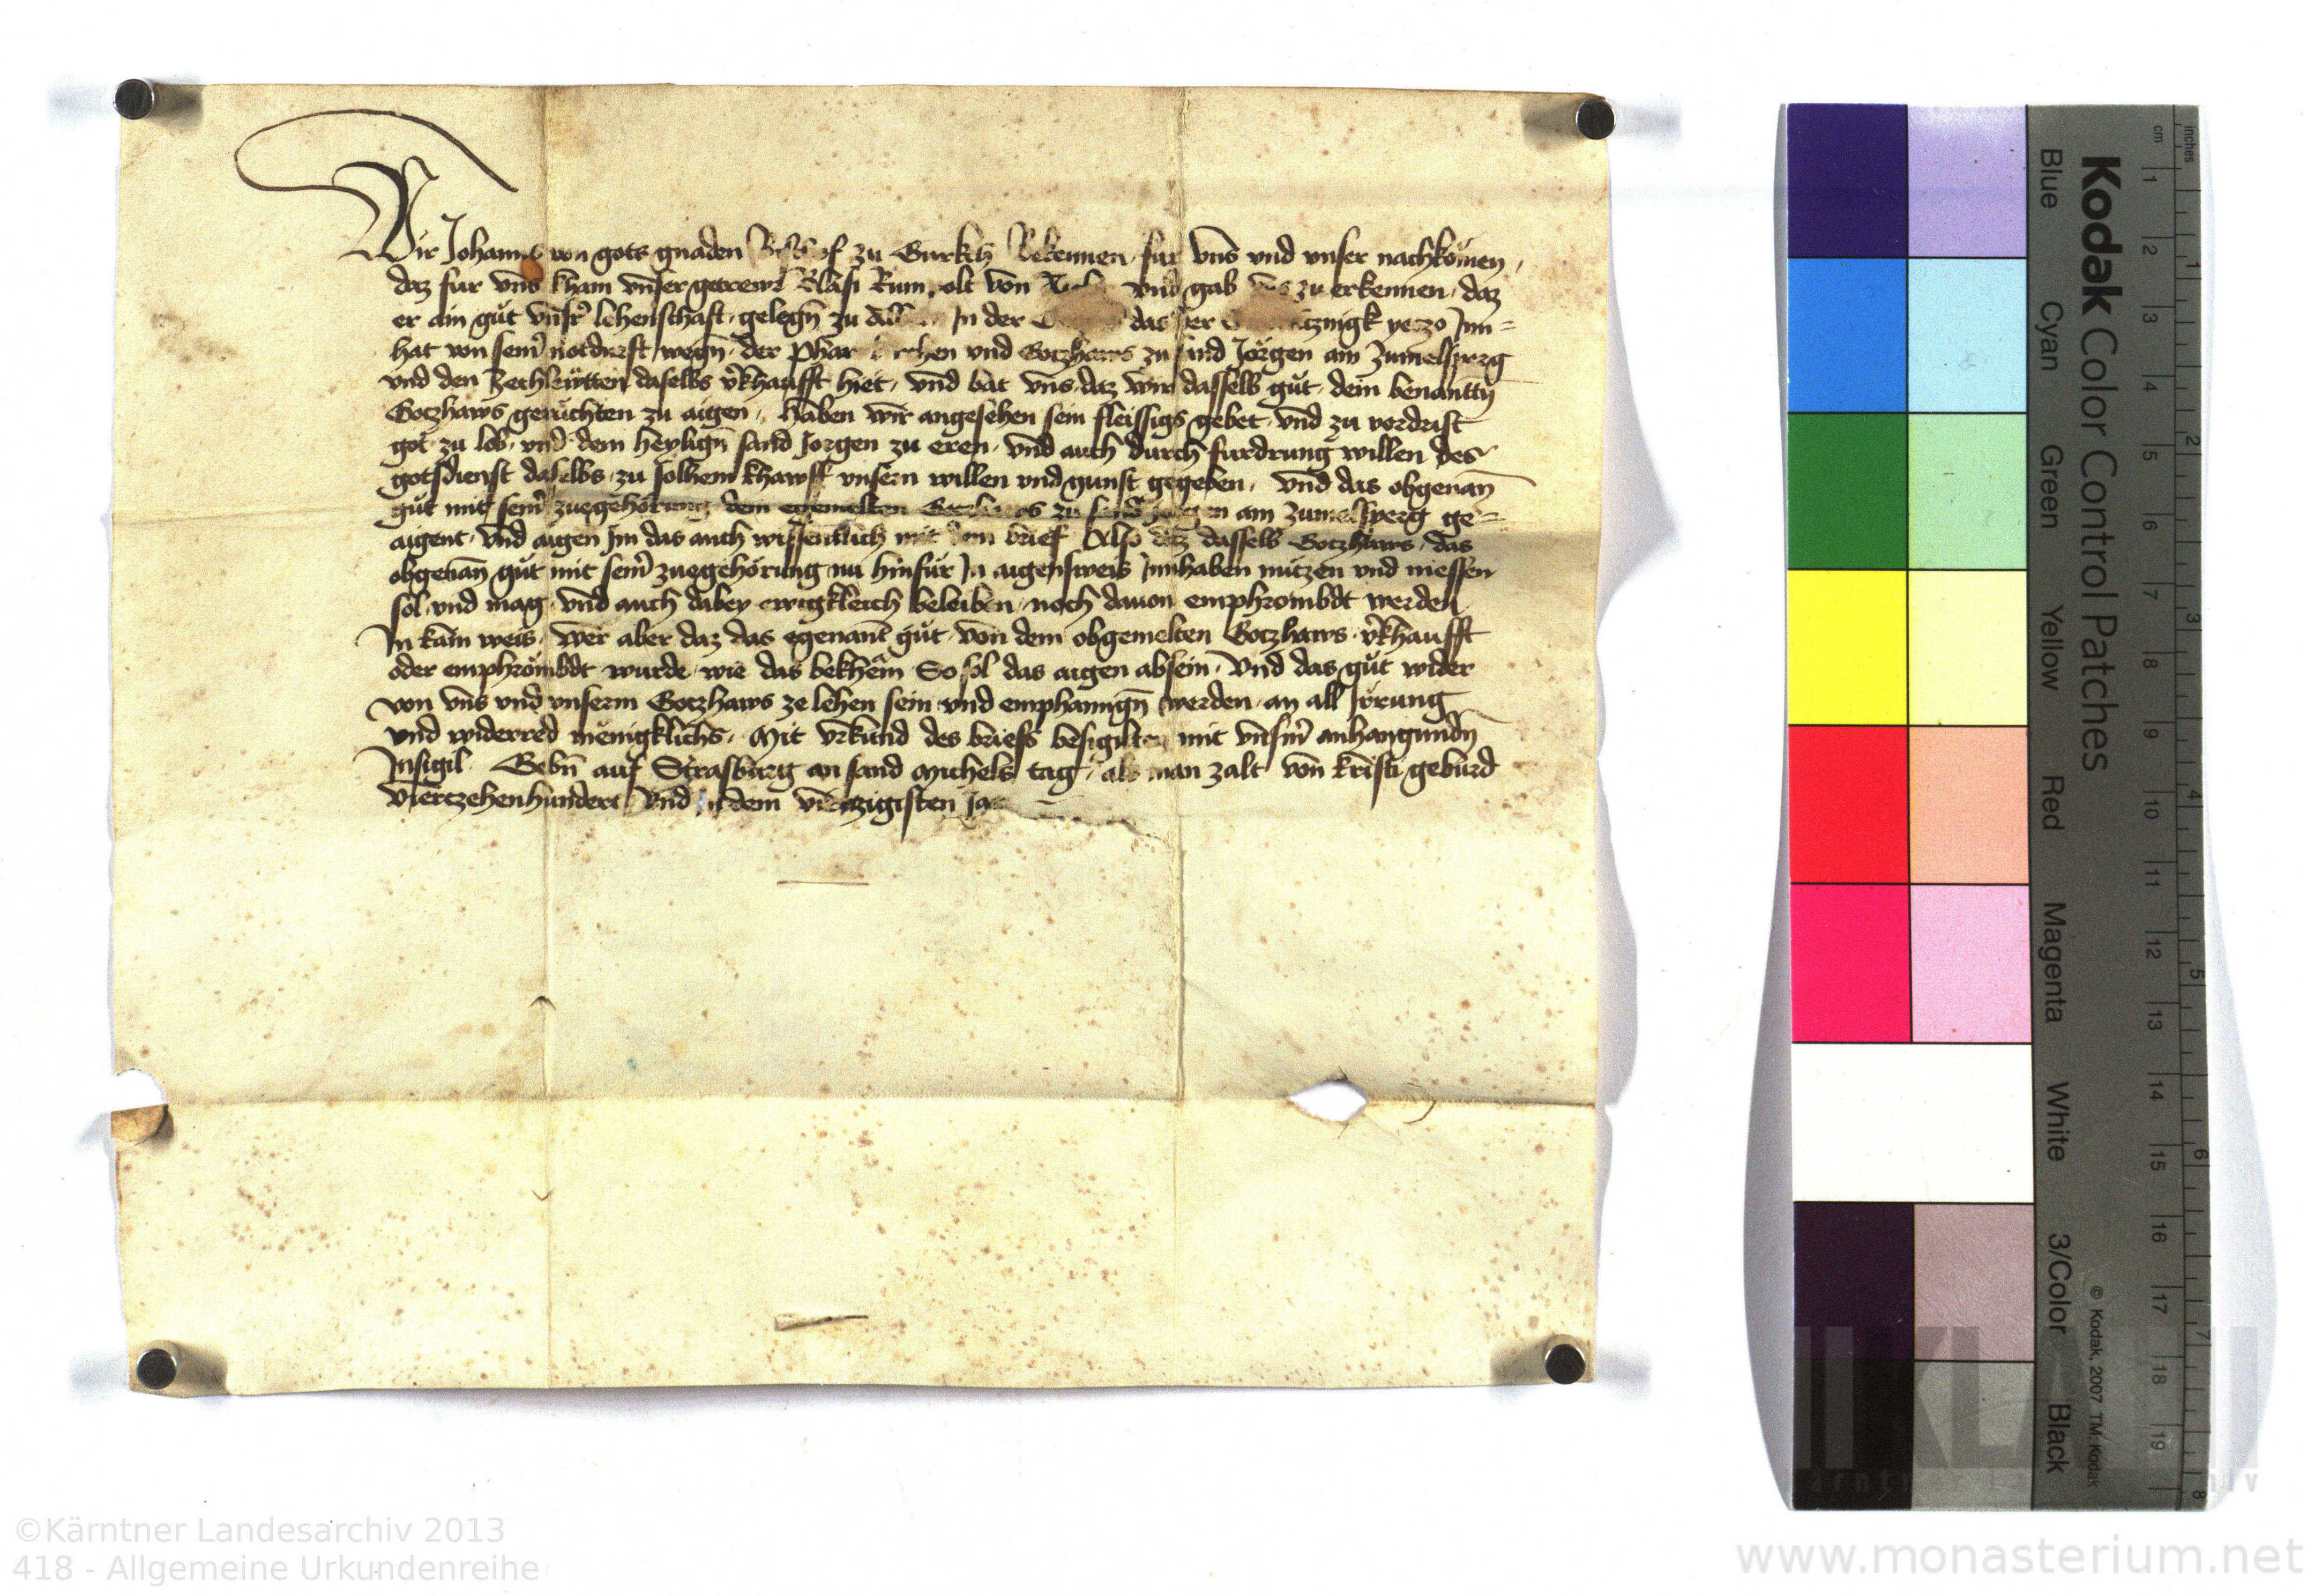 Wir Johanns von gots gnaden Bischof zu Gurkch Bekennen fur vns vnd vnser nachkomen,
daz fur vns kham vnser getrewr Blasi Rumpolt von vnd gab vns zu erkennen, daz
er ain gut vnsrer lehenschaft gelegn zu In der das der yeczo Inn=
hat von seinr notdurft wegn der Phar kirchen vnd Goczhaws zu sand Jorgen am Zumelsperg
vnd den Zechlewtten daselbs v'khaufft hiet, vnd bat vns daz wir dasselb gut dem benantn
Goczhaws geruchten zu aigen, haben wir angesehen sein fleissigs gebet vnd zu vordrist
got zu lob vnd dem heylign sand Jorgen zu eren vnd auch durch furdrung willen des
gotsdienst daselbs zu solhem khawff vnsern willen vnd gunst gegeben, vnd das obgenan
gut mit seinr zuegehorung dem egemelten Goczhaws zu sand Jorgen am Zumelsperg ge=
aigent vnd aigen Im das auch wissentlich mit dem brief Also daz dasselb Goczhaws, das
obgenan gut mit seinr zuegehorung nu hinfur In aigensweis Innhaben nuczen vnd niessen
sol vnd mag vnd auch dabey ewigkleich beleiben, noch dauon emphrombdt werden
In kain weis, wer aber daz das egenant gut von dem obgemelten Goczhaws v'khaufft
oder emphrombdt wurde wie das bekhem So sol das aigen absein, vnd das gut wider
von vns vnd vnserm Goczhaws ze lehen sein vnd emphanngn werden an all Irrung
vnd widerred menigklichs, Mit vrkund des briefs besigilten mit vnserm anhangundn
Insigil Gebn auf Strasburg an sand Michels tag, als man zalt von kristi geburd
vierczehenhundert vnd in dem vierczigisten Jar
Kodak Color Control Patches
Blue Cyan Green Yellow Red Magenta White 3/Color Black
© Kodak, 2007 TM: Kodak
cm 1 2 3 4 5 6 7 8 9 10 11 12 13 14 15 16 17 18 19
inches 1 2 3 4 5 6 7 8
KLA
©Kärntner Landesarchiv 2013
418 - Allgemeine Urkundenreihe
www.monasterium.net